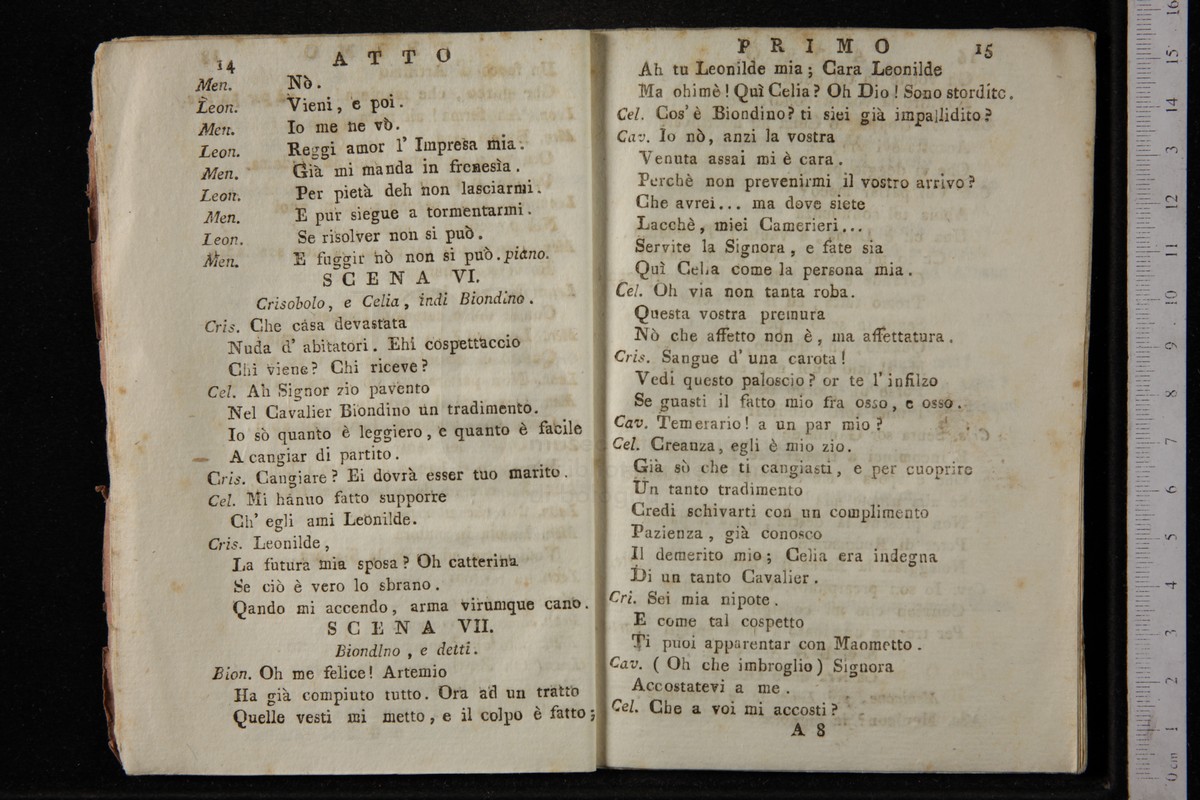 14 ATTO
Men. Nò.
Leon. Vieni, e poi.
Men. Io me ne vò.
Leon. Reggi amor l' Impresa mia.
Men. Già mi manda in frenesìa.
Leon. Per pietà deh non lasciarmi.
Men. E pur siegue a tormentarmi.
Leon. Se risolver non si può.
Men. E fuggir nò non si può. piano.
SCENA VI.
Crisobolo, e Celia, indi Biondino.
Cris. Che casa devastata
Nuda d' abitatori. Ehi cospettaccio
Chi viene? Chi riceve?
Cel. Ah Signor zio pavento
Nel Cavalier Biondino un tradimento.
Io sò quanto è leggiero, e quanto è facile
A cangiar di partito.
Cris. Cangiare? Ei dovrà esser tuo marito.
Cel. Mi hannuo fatto supporre
Ch' egli ami Leonilde.
Cris. Leonilde,
La futura mia sposa? Oh catterina
Se ciò è vero lo sbrano.
Qando mi accendo, arma virumque cano.
SCENA VII.
Biondlno, e detti.
Bion. Oh me felice! Artemio
Ha già compiuto tutto. Ora ad un tratto
Quelle vesti mi metto, e il colpo è fatto;
PRIMO 15
Ah tu Leonilde mia; Cara Leonilde
Ma ohimè! Quì Celia? Oh Dio! Sono stordito.
Cel. Cos' è Biondino? ti siei già impallidito?
Cav. Io nò, anzi la vostra
Venuta assai mi è cara.
Perchè non prevenirmi il vostro arrivo?
Che avrei... ma dove siete
Lacchè, miei Camerieri...
Servite la Signora, e fate sia
Quì Celia come la persona mia.
Cel. Oh via non tanta roba.
Questa vostra premura
Nò che affetto non è, ma affettatura.
Cris. Sangue d' una carota!
Vedi questo paloscio? or te l' infilzo
Se guasti il fatto mio fra osso, e osso.
Cav. Temerario! a un par mio?
Cel. Creanza, egli è mio zio.
Già sò che ti cangiasti, e per cuoprire
Un tanto tradimento
Credi schivarti con un complimento
Pazienza, già conosco
Il demerito mio; Celia era indegna
Di un tanto Cavalier.
Cri. Sei mia nipote.
E come tal cospetto
Ti puoi apparentar con Maometto.
Cav. (Oh che imbroglio) Signora
Accostatevi a me.
Cel. Che a voi mi accosti?
A 8